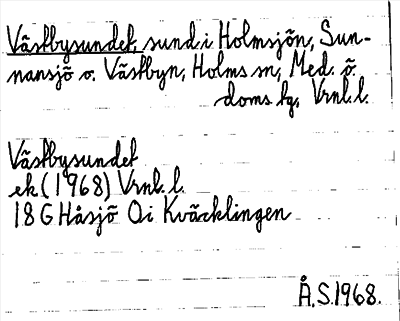 Västbysundet, sund i Holmsjön, Sun-
nansjö o. Västbyn, Holms sn, Med. ö.
doms tg, Vrnl. l.
Västbysundet
ek. (1968) Vrnl. l.
18 G Håsjö Oi Kväcklingen
Å.S. 1968.